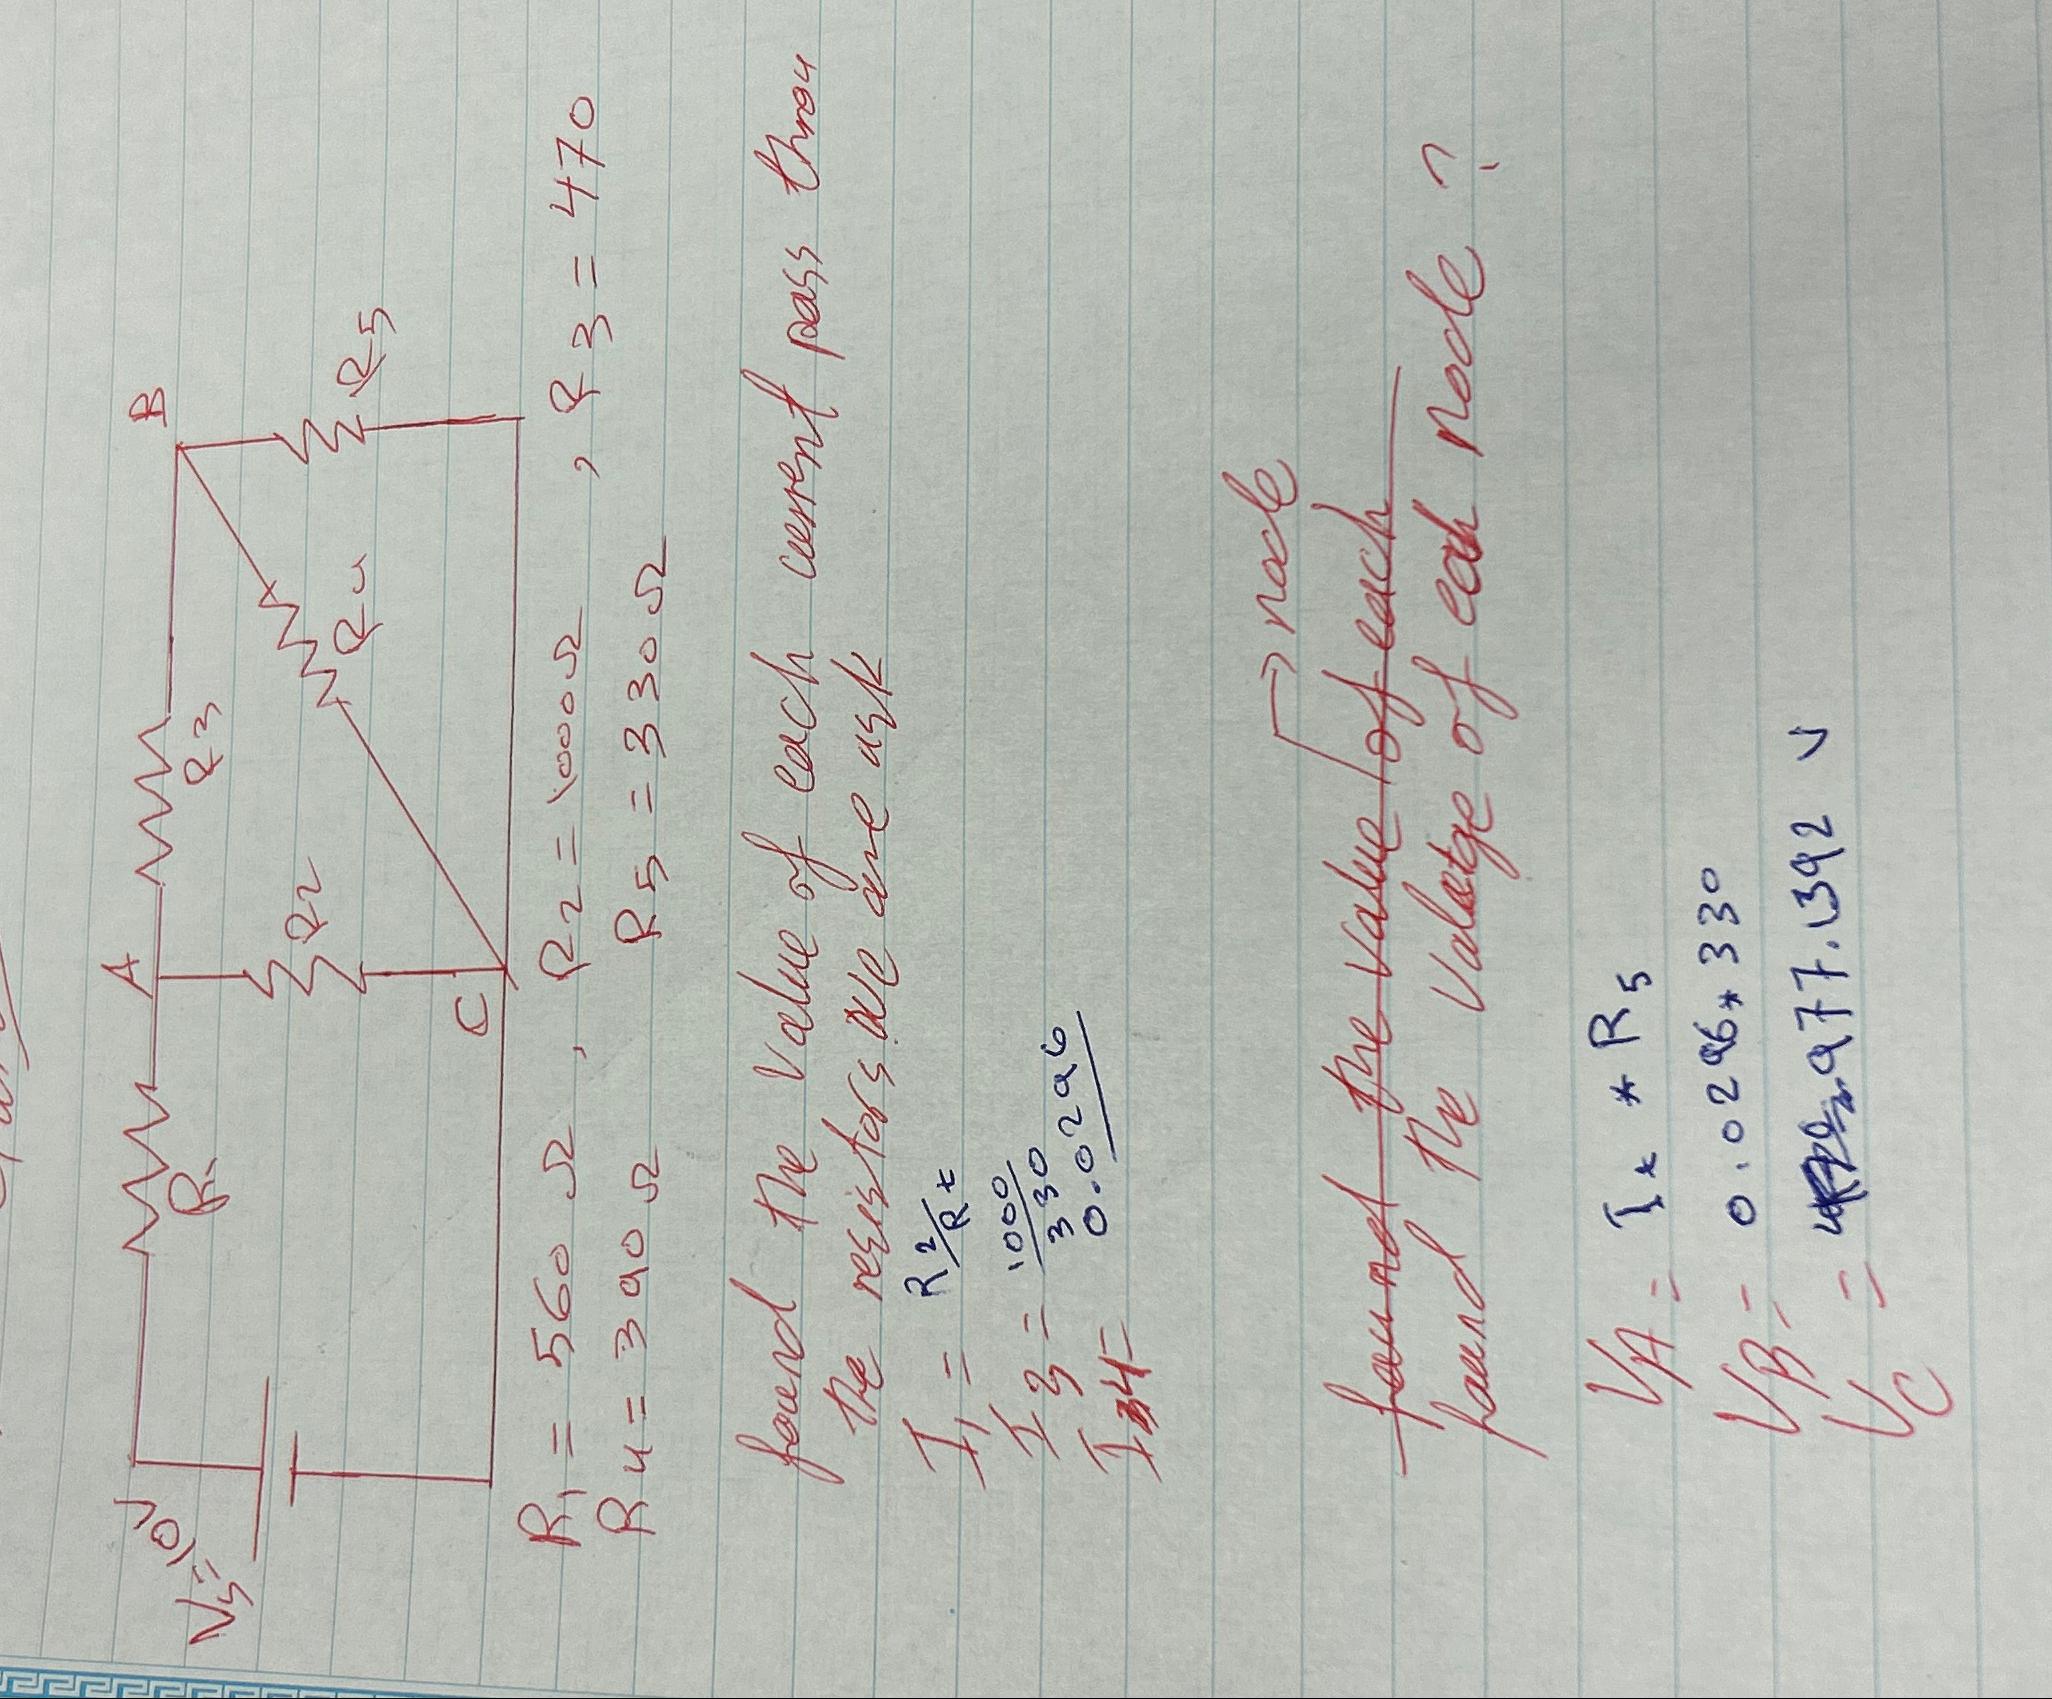 Vs= 10V
R1
A
R3
B
R2
R4
R5
C
R1 = 560 Ω , R2 = 1000Ω , R3 = 470
R4 = 390 Ω R5 = 330 Ω
found the value of each current pass throu
the resistors we are ask
I1 = R2/Rx
I3 = 1000/330
I4= 0.0296
→ node
found the value of each
found the Valatge of each node ?
VA = Ix * R5
VB = 0.0296 * 330
VC = 977.392 V